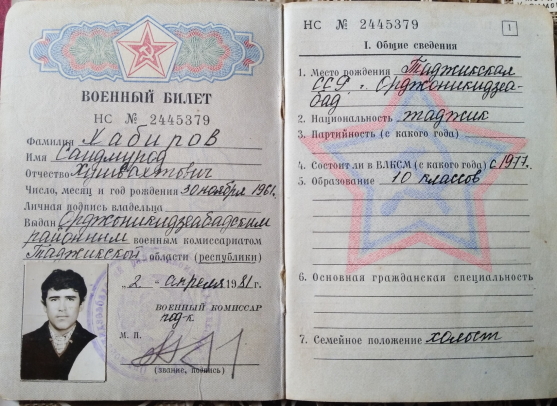 ВОЕННЫЙ БИЛЕТ
НС № 2445379
Фамилия Хабиров
Имя Саидмурод
Отчество
Число, месяц и год рождения 30 ноября 1961г.
Личная подпись владельца
Выдан Орджоникидзеабадским
районным военным комиссариатом
Таджикской области (республики)
„2“ апреля 1981 г.
ВОЕННЫЙ КОМИССАР
М. П.
(звание, подпись)
НС № 2445379
1
I. Общие сведения
1. Место рождения Таджикская
ССР. Орджоникидзеа-
бад
2. Национальность таджик
3. Партийность (с какого года)
4. Состоит ли в ВЛКСМ (с какого года) с 1977г.
5. Образование 10 классов
6. Основная гражданская специальность
7. Семейное положение холост